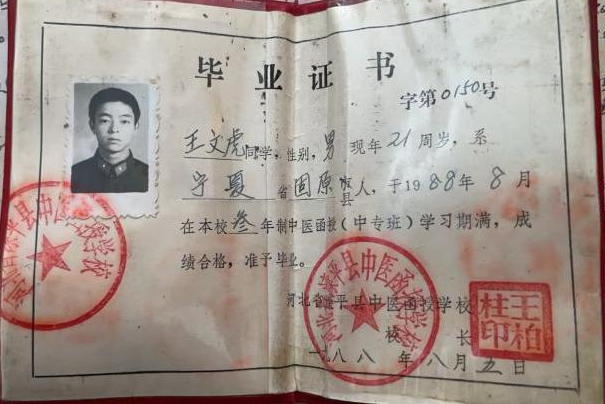 毕业证书
字第0150号
王文虎同学,性别,男现年21周岁,系
宁夏省固原市县人,于1988年8月
在本校叁年制中医函授(中专班)学习期满,成
绩合格,准予毕业。
河北省滦平县中医函授学校
校长
王柏柱印
一九八八年八月五日